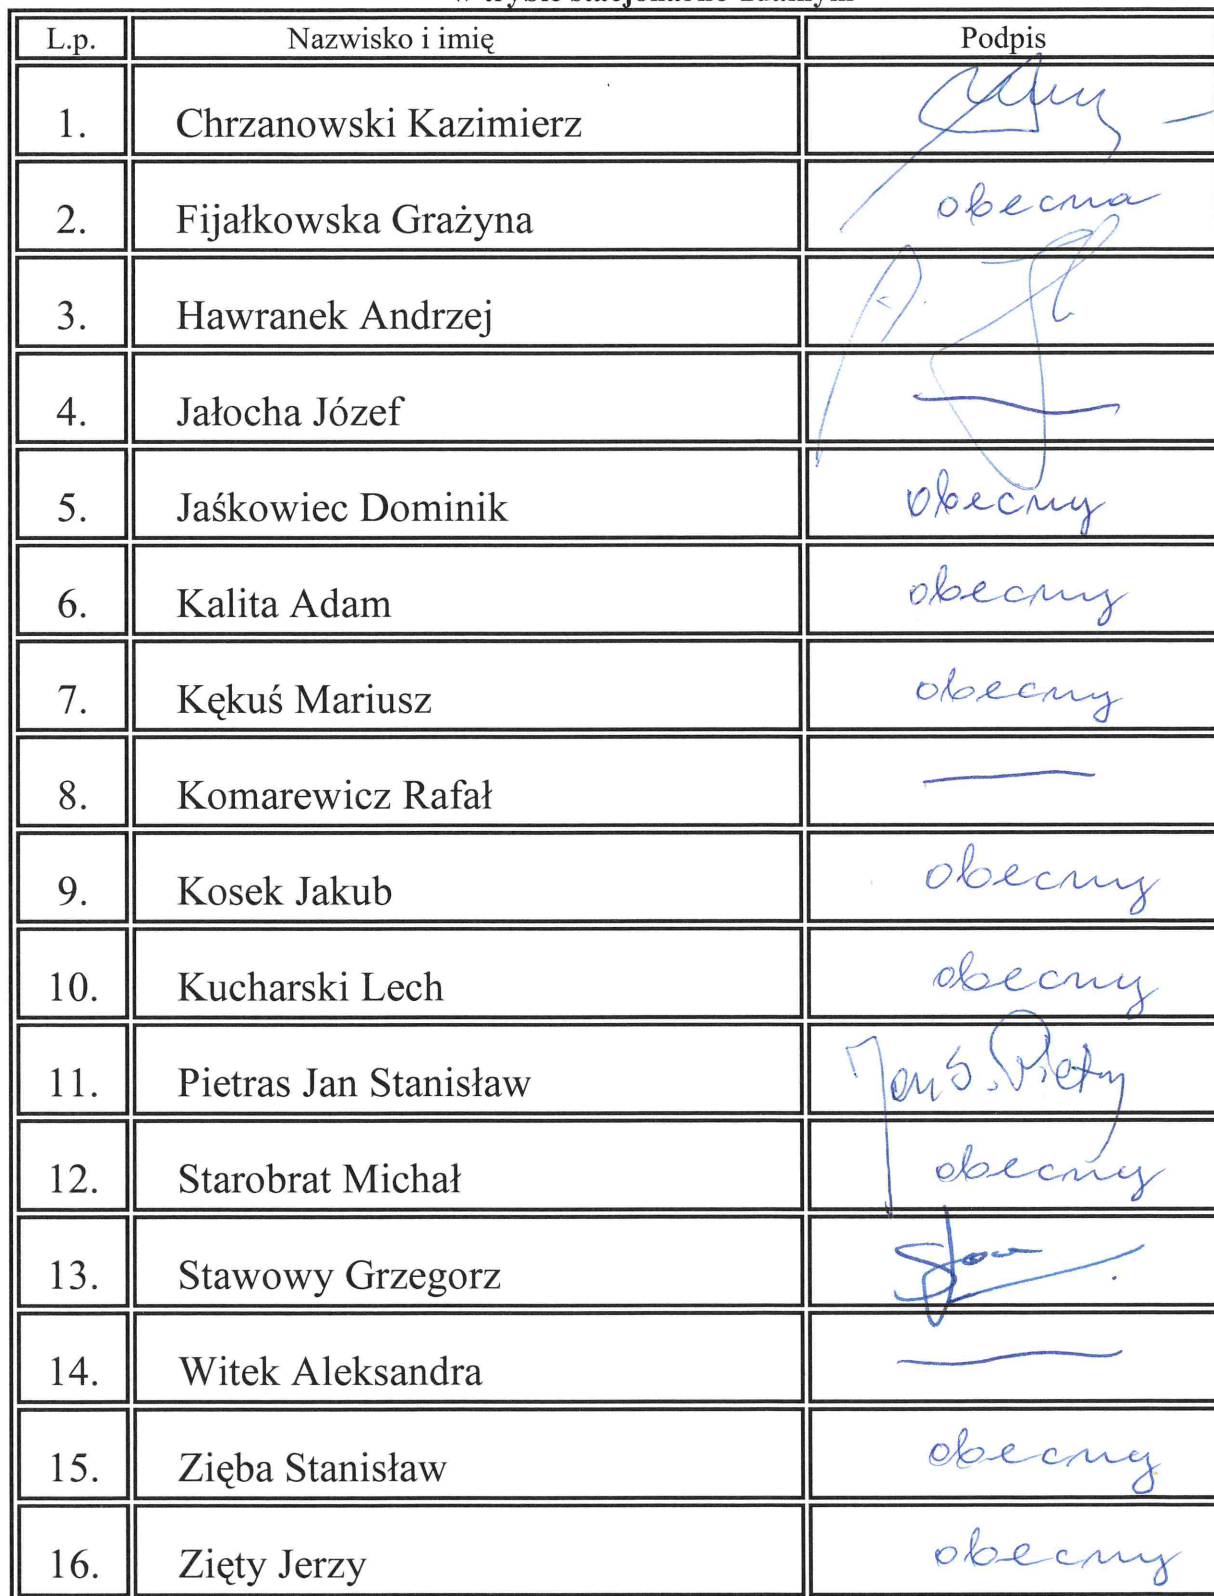 L.p. Nazwisko i imię Podpis
1. Chrzanowski Kazimierz
2. Fijałkowska Grażyna obecna
3. Hawranek Andrzej
4. Jałocha Józef
5. Jaśkowiec Dominik obecny
6. Kalita Adam obecny
7. Kękuś Mariusz obecny
8. Komarewicz Rafał
9. Kosek Jakub obecny
10. Kucharski Lech obecny
11. Pietras Jan Stanisław Jan S.
12. Starobrat Michał obecny
13. Stawowy Grzegorz
14. Witek Aleksandra
15. Zięba Stanisław obecny
16. Zięty Jerzy obecny